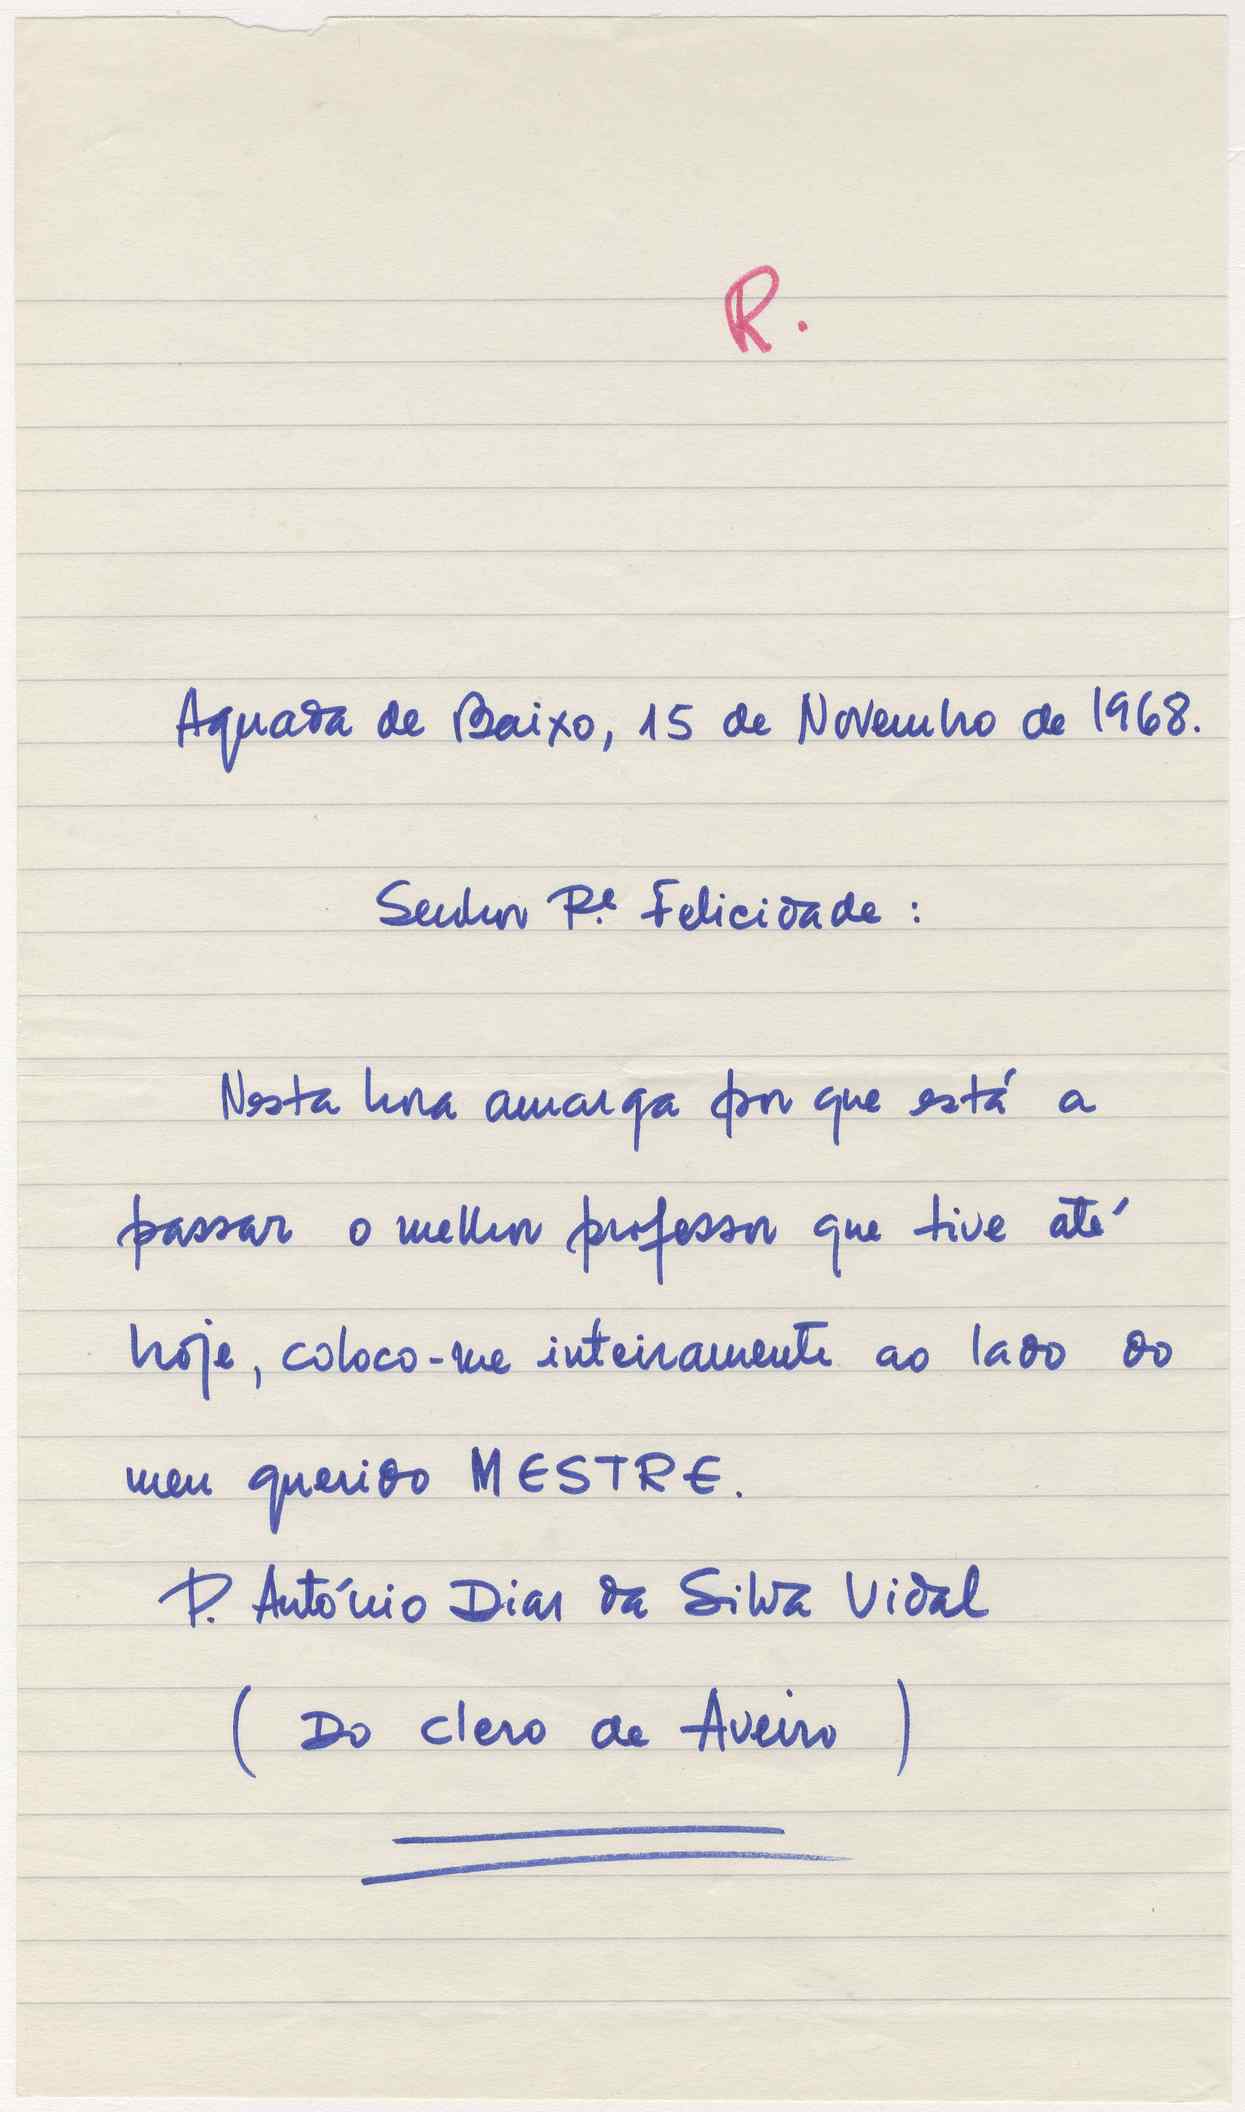 R.
Aguada de Baixo, 15 de Novembro de 1968.
Senhor P.e Felicidade :
Nesta hora amarga por que está a
passar o melhor professor que tive até
hoje, coloco-me inteiramente ao lado do
meu querido MESTRE.
P. António Dias da Silva Vidal
( Do clero de Aveiro )